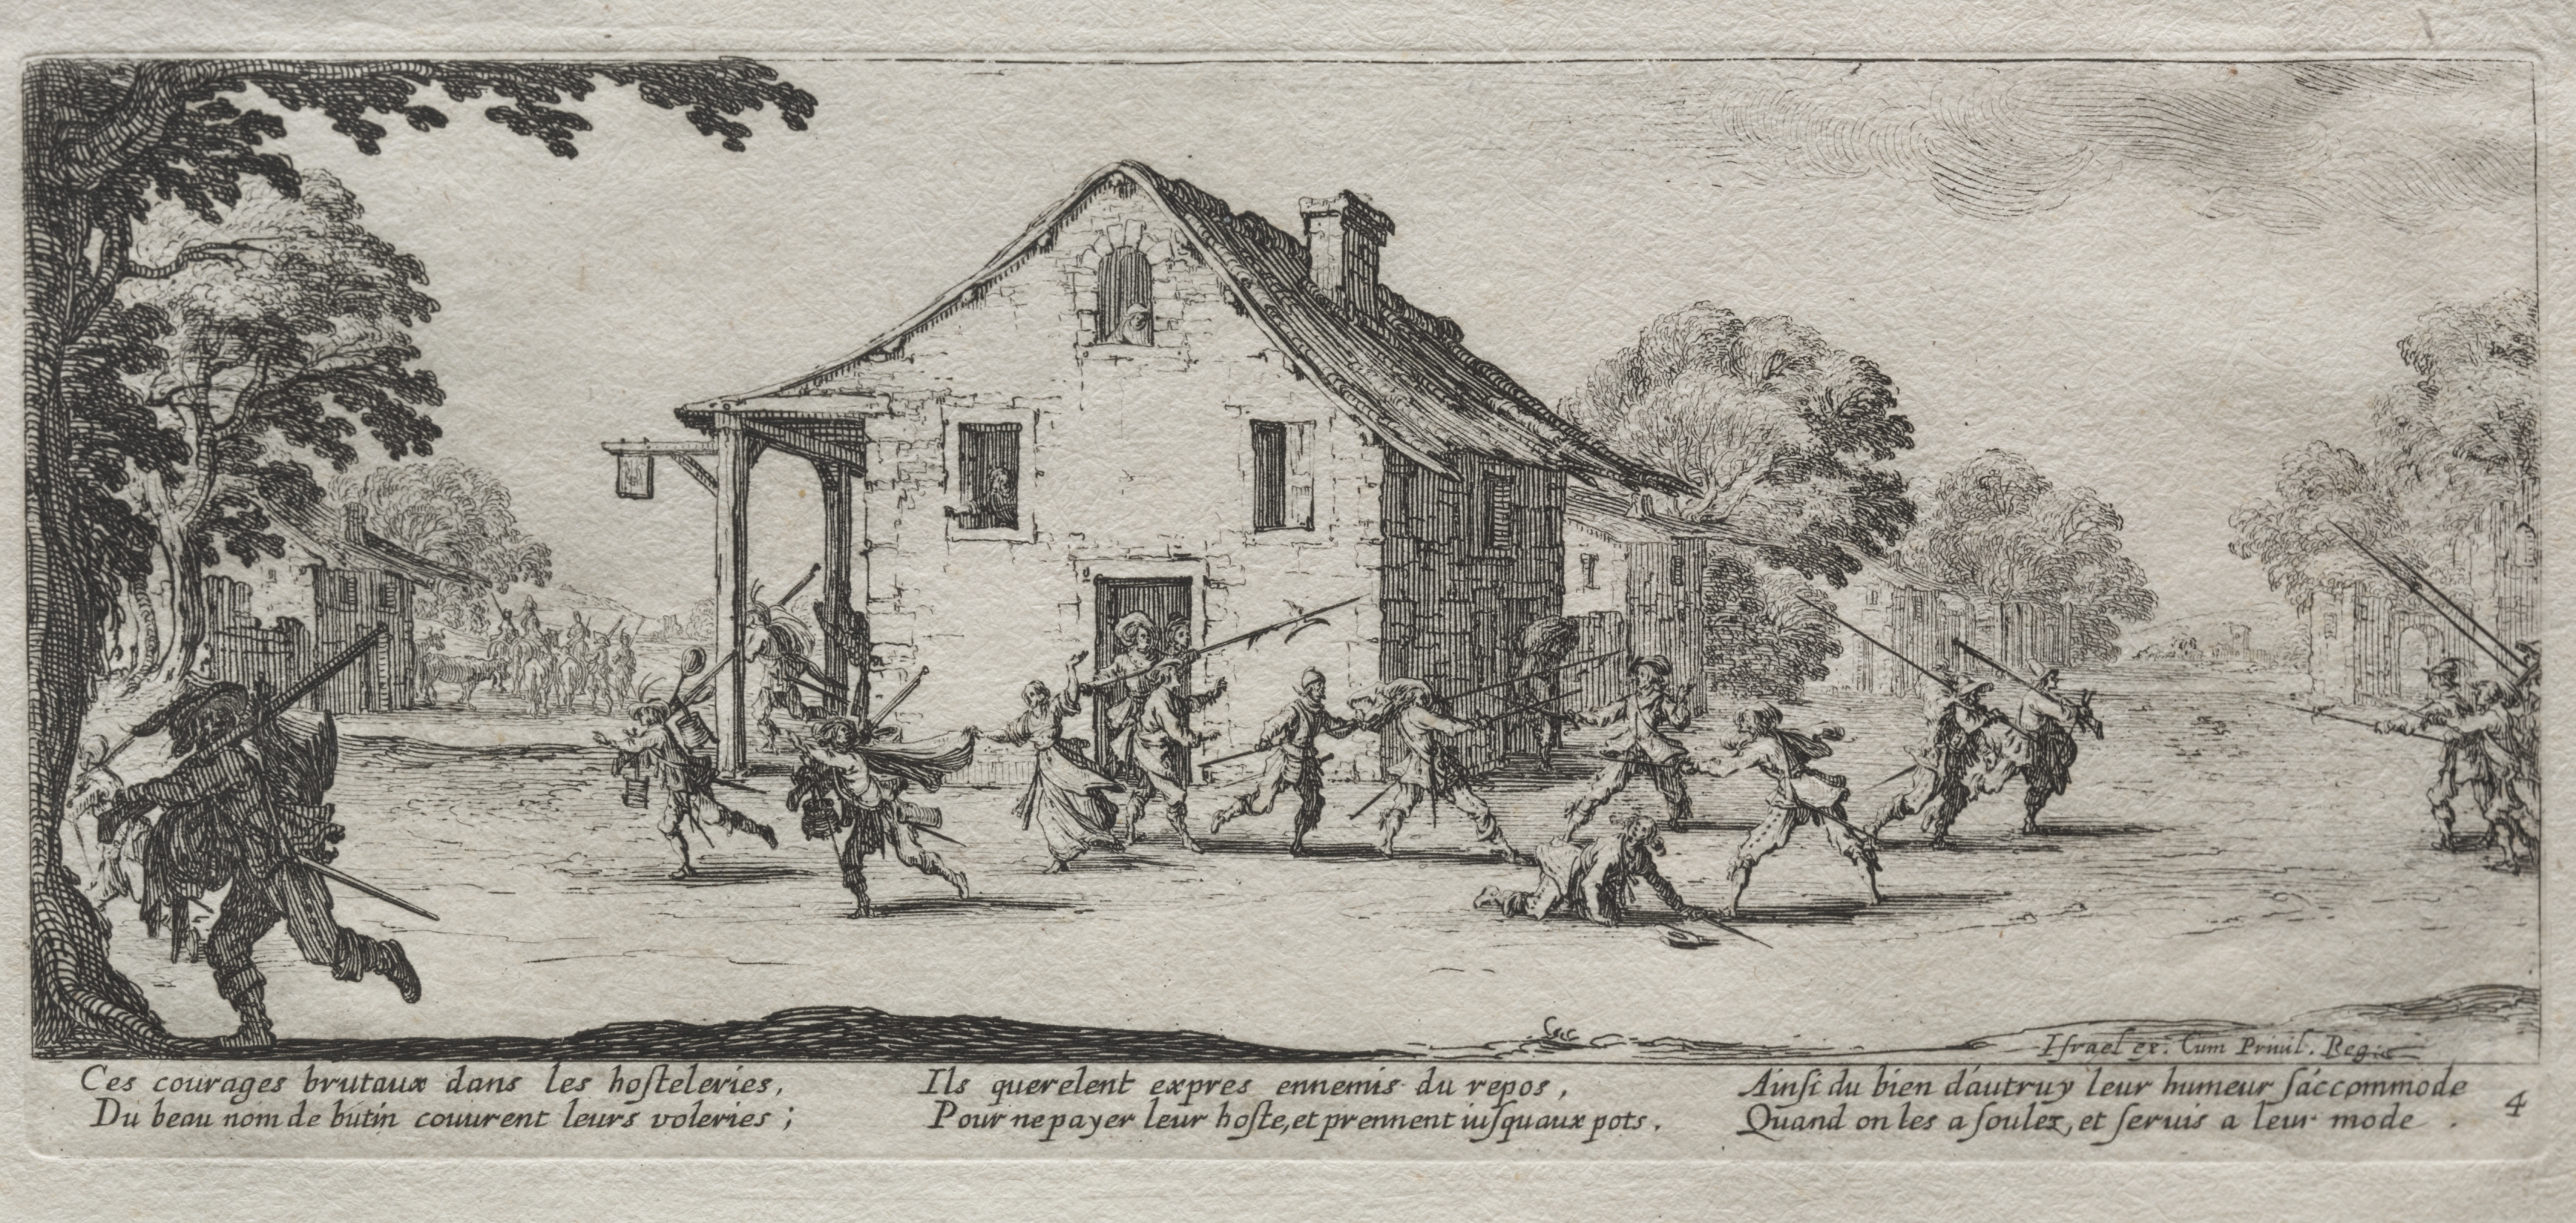 Iſrael ex. Cum Priuil. Regis
Ces courages brutaux dans les hoſteleries,
Du beau nom de butin couurent leurs voleries ;
Ils querelent expres ennemis du repos,
Pour ne payer leur hoſte, et prennent iuſquaux pots.
Ainſi du bien d'autruy leur humeur ſ'accommode
Quand on les a ſoulez, et ſeruis a leur mode .
4